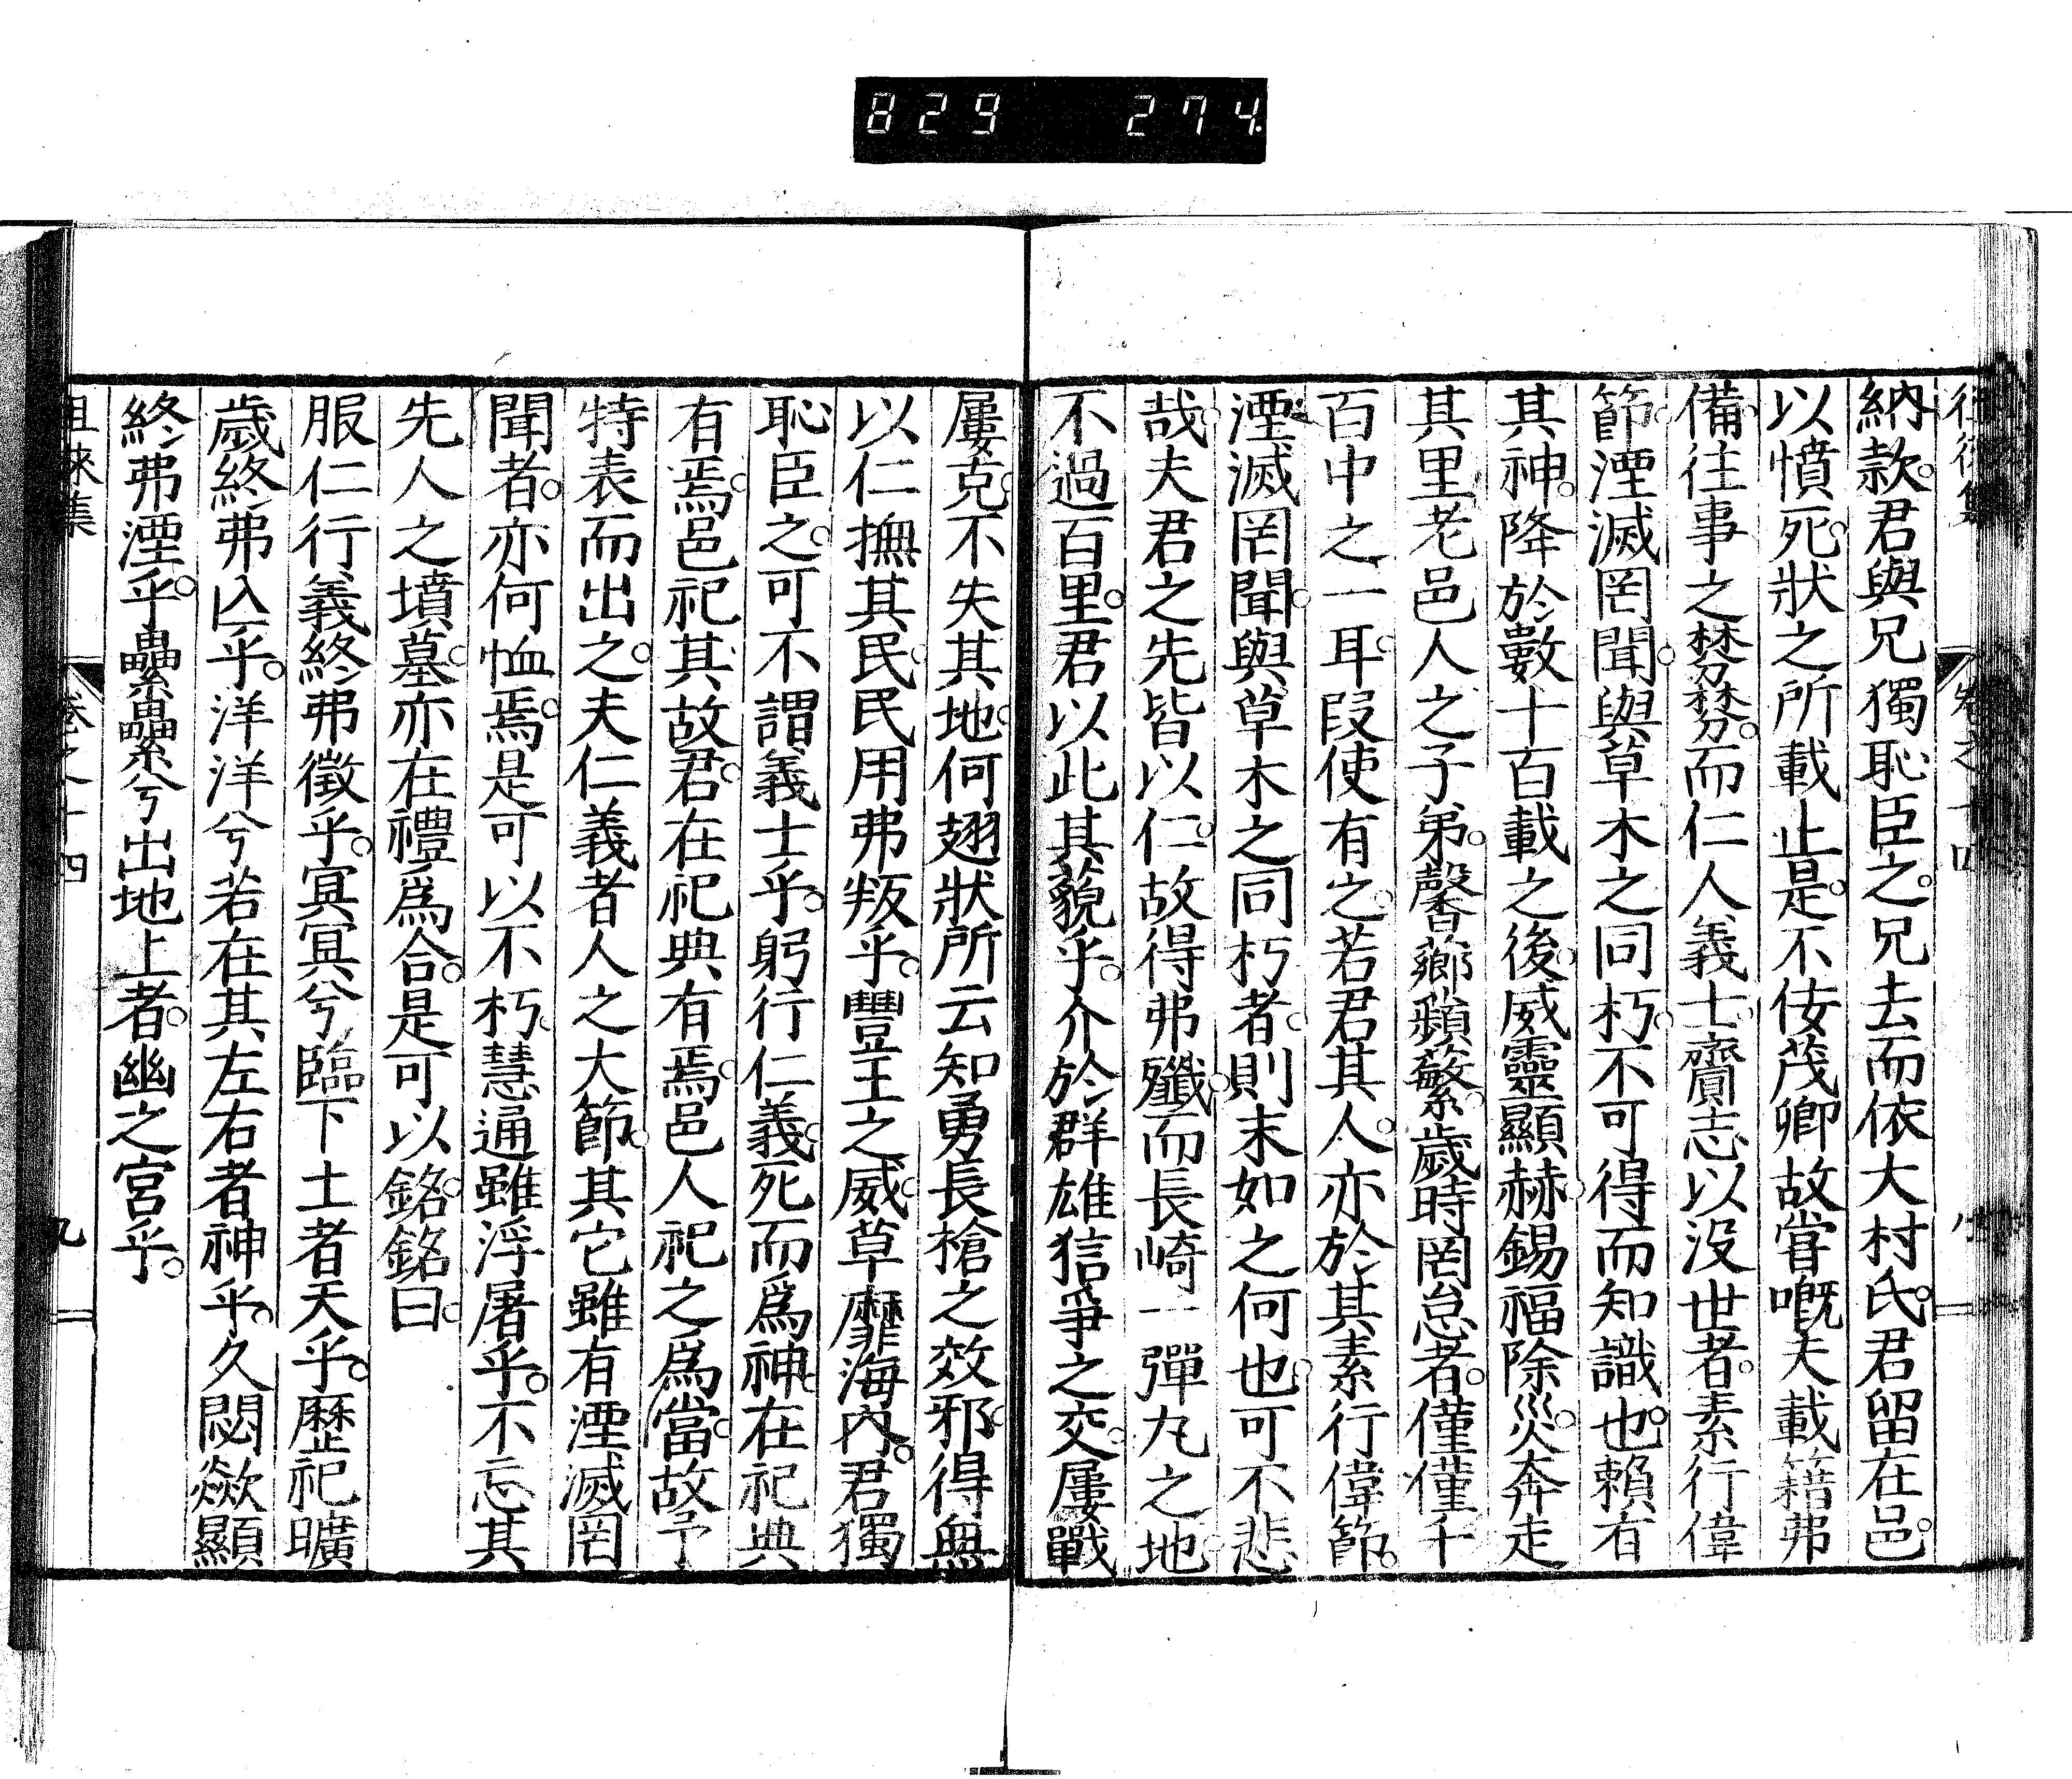 829 274
納款。君與兄獨恥臣之。兄去而依大村氏。君留在邑。
以憤死。狀之所載止是。不佞茂卿故嘗嘅夫載籍弗
備。往事之棼棼。而仁人義士。齎志以没世者。素行偉
節。湮滅罔聞。與草木之同朽。不可得而知識也。賴有
其神。降於數十百載之後。威靈顯赫。錫福除災。奔走
其里老邑人之子弟。馨薌蘋蘩。歲時罔怠者。僅僅千
百中之一耳。叚使有之。若君其人。亦於其素行偉節。
湮滅罔聞。與草木之同朽者。則末如之何也。可不悲
哉。夫君之先皆以仁。故得弗殲。而長崎一彈丸之地。
不過百里。君以此其藐乎。介於群雄狺爭之交。屢戰
屢克。不失其地。何翅狀所云知勇長槍之效邪。得無
以仁撫其民。民用弗叛乎。豐王之威。草靡海內。君獨
恥臣之。可不謂義士乎。躬行仁義。死而爲神。在祀典
有焉。邑祀其故君。在祀典有焉。邑人祀之爲當。故予
特表而出之。夫仁義者人之大節。其它雖有湮滅罔
聞者。亦何恤焉。是可以不朽。慧通雖浮屠乎。不忘其
先人之墳墓。亦在禮爲合。是可以銘。銘曰。
服仁行義終弗徵乎。冥冥兮臨下土者天乎。歷祀曠
歲終弗亾乎。洋洋兮若在其左右者神乎。久閟歘顯
終弗湮乎。纍纍兮出地上者。幽之宮乎。
徂徠集 卷之十四 九